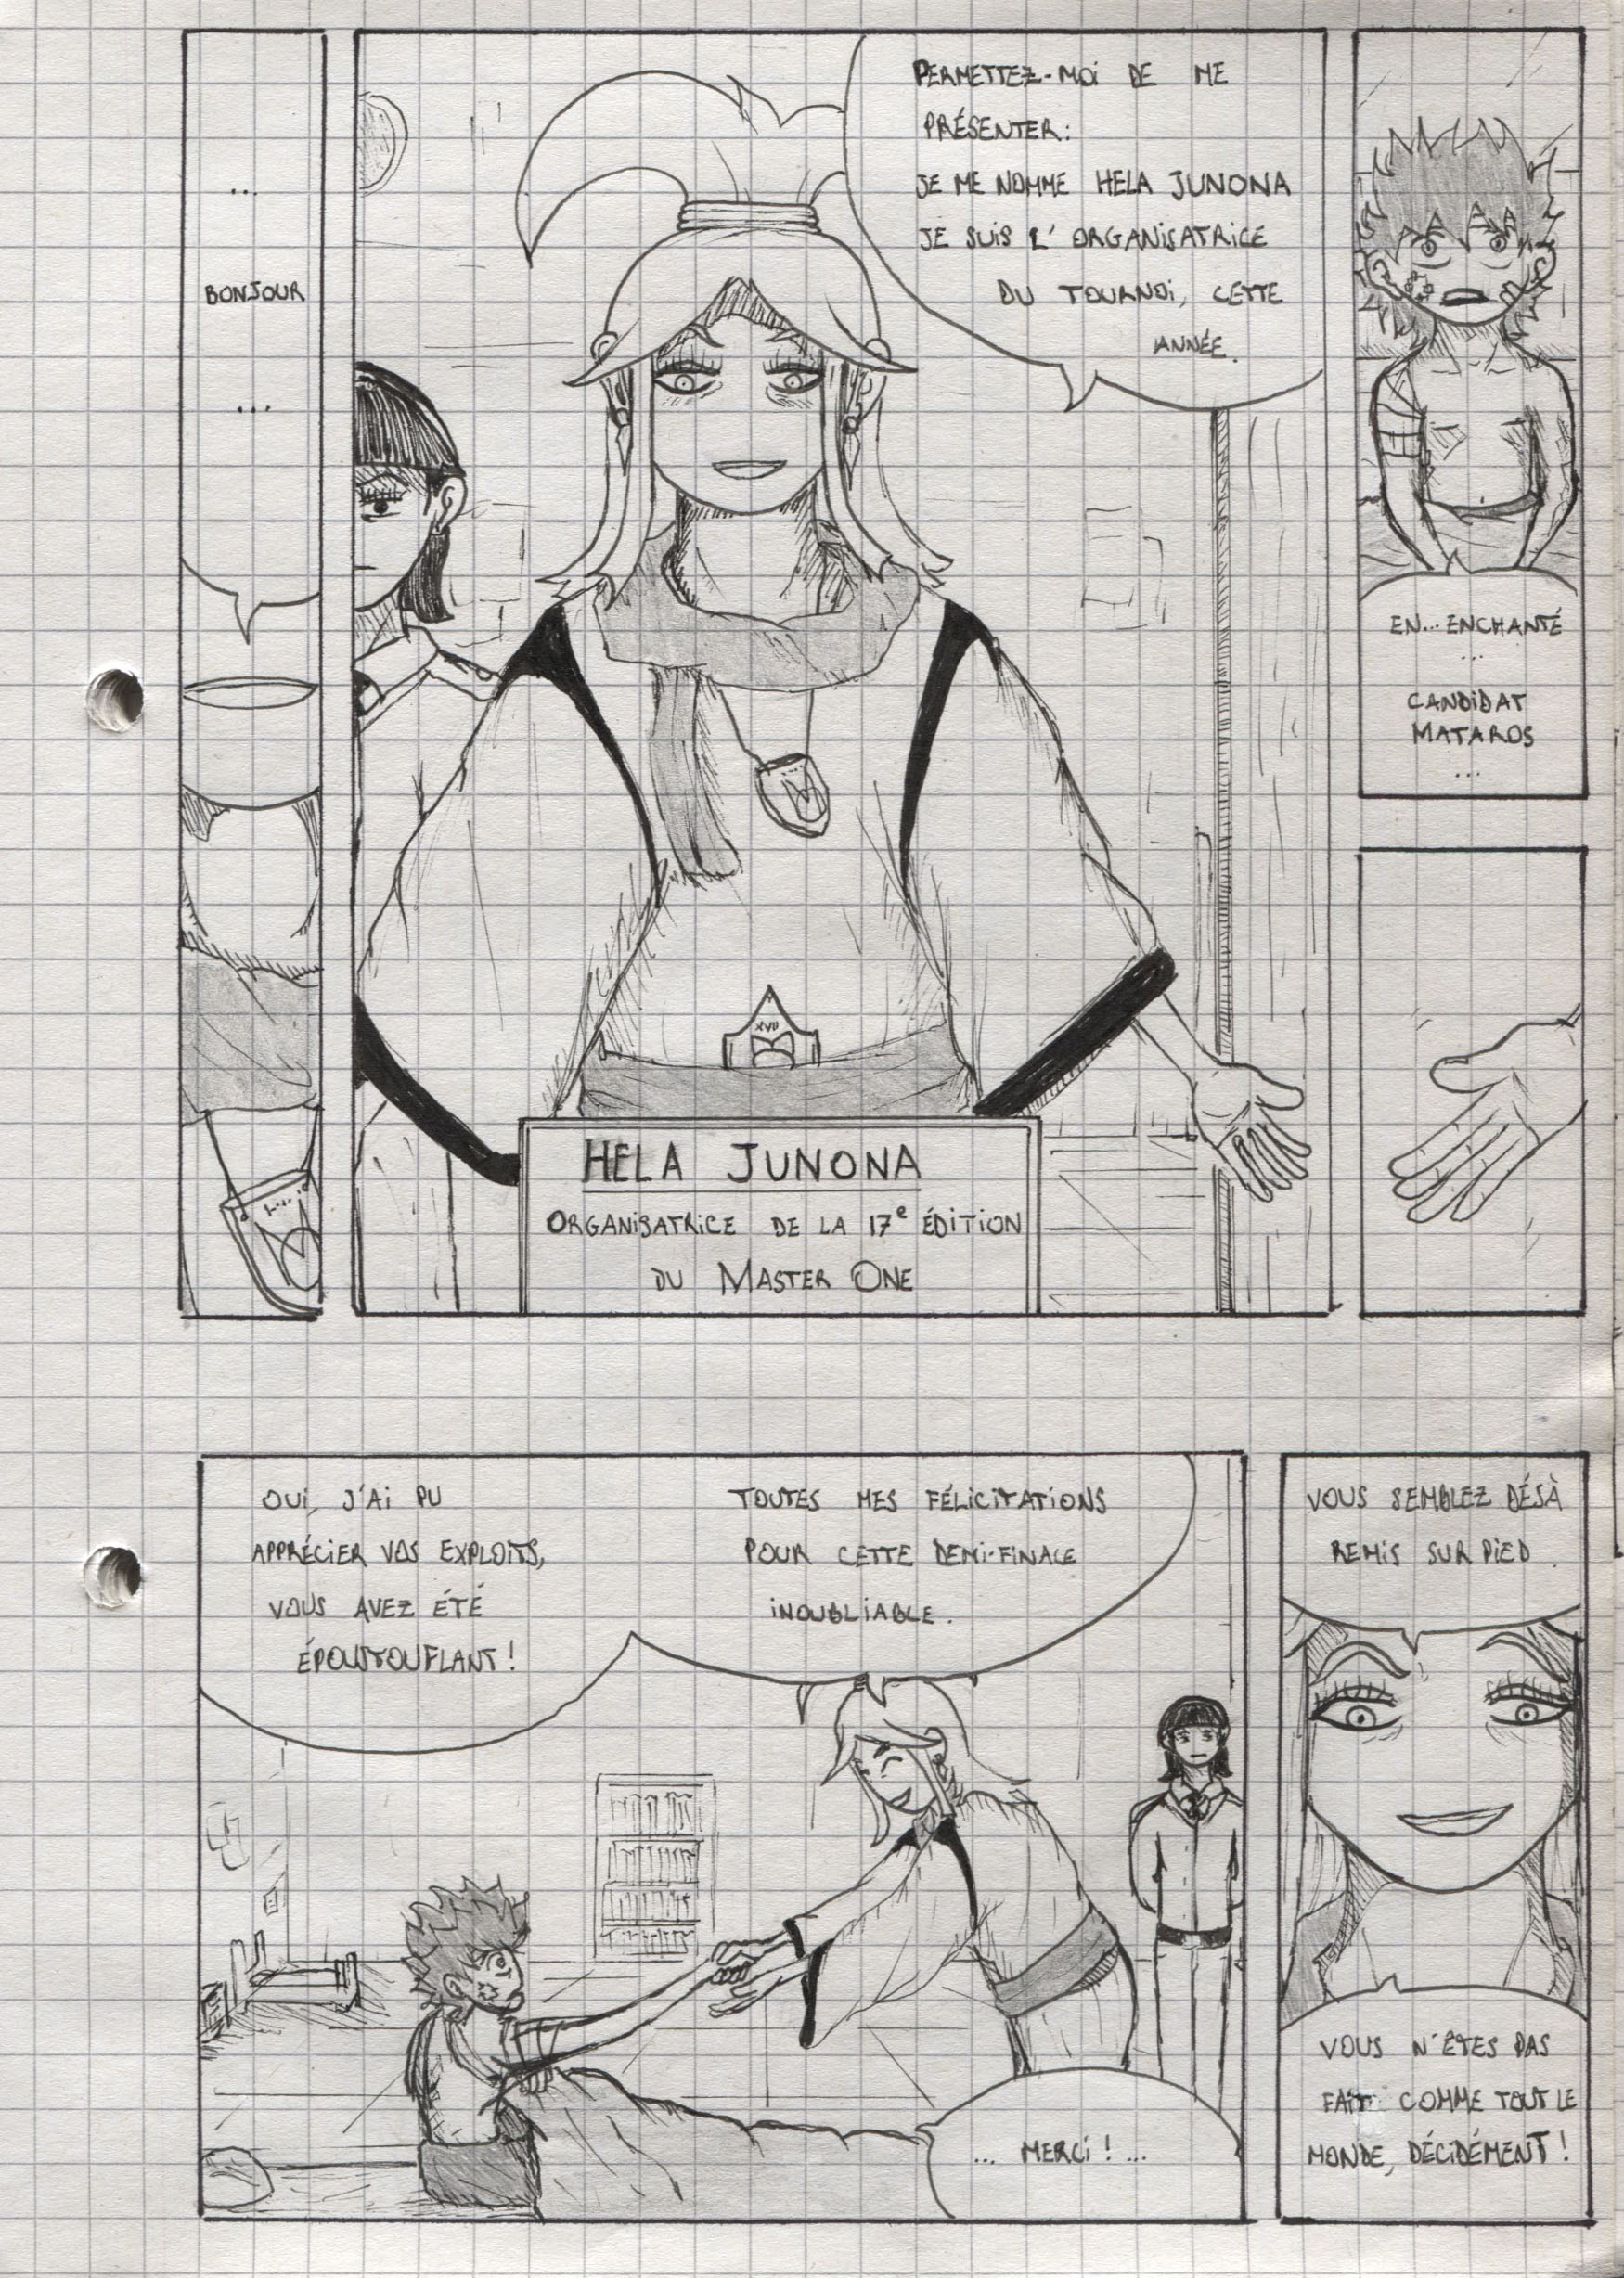 ...
BONJOUR
...
PERMETTEZ-MOI DE ME
PRÉSENTER:
JE ME NOMME HELA JUNONA
JE SUIS L'ORGANISATRICE
DU TOURNOI, CETTE
ANNÉE.
XVII
HELA JUNONA
ORGANISATRICE DE LA 17e ÉDITION
DU MASTER ONE
EN... ENCHANTÉ
...
CANDIDAT
MATAROS
...
OUI, J'AI PU
APPRÉCIER VOS EXPLOITS,
VOUS AVEZ ÉTÉ
ÉPOUSTOUFLANT !
TOUTES MES FÉLICITATIONS
POUR CETTE DEMI-FINALE
INOUBLIABLE.
... MERCI ! ...
VOUS SEMBLEZ DÉJÀ
REMIS SUR PIED.
VOUS N'ÊTES PAS
FAIT COMME TOUT LE
MONDE, DÉCIDÉMENT !